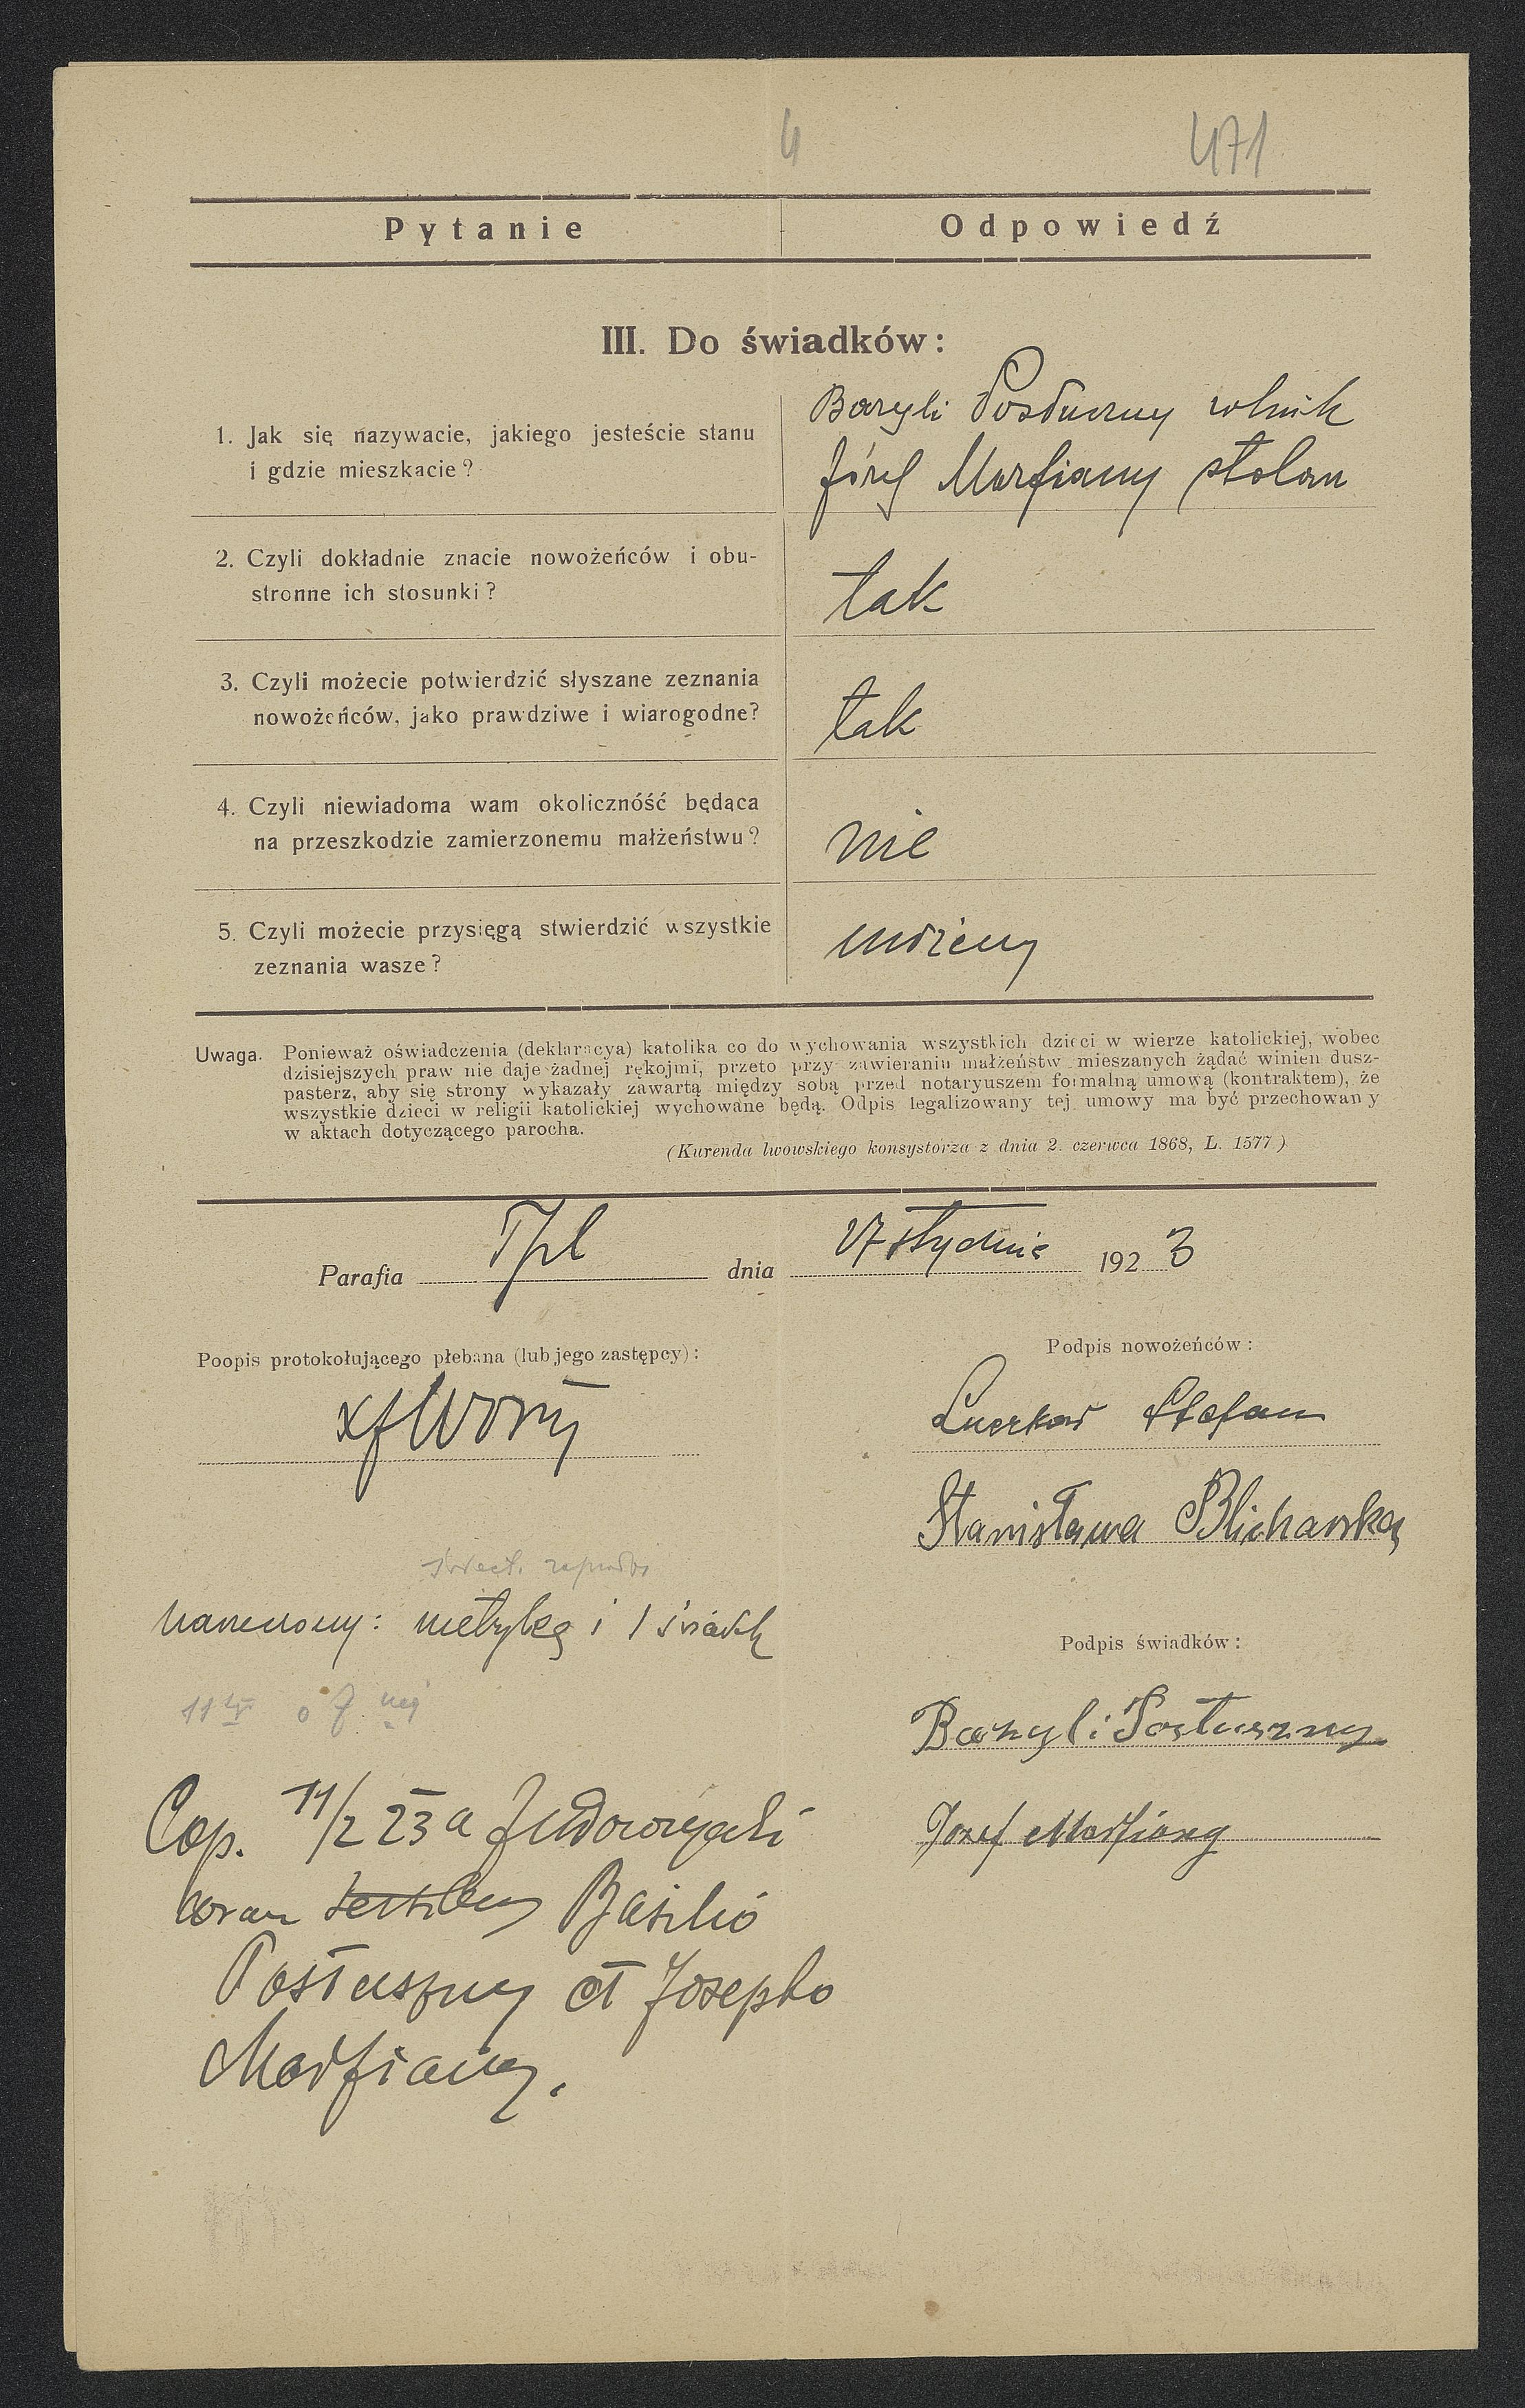 4
471
Pytanie
Odpowiedź
III. Do świadków:
1. Jak się nazywacie, jakiego jesteście stanu
i gdzie mieszkacie?
Bazyli Posłuszny rolnik
Józef Marfiany stolarz
2. Czyli dokładnie znacie nowożeńców i obu-
stronne ich stosunki?
tak
3. Czyli możecie potwierdzić słyszane zeznania
nowożeńców, jako prawdziwe i wiarogodne?
tak
4. Czyli niewiadoma wam okolicznóść będąca
na przeszkodzie zamierzonemu małżeństwu?
nie
5. Czyli możecie przysięgą stwierdzić wszystkie
zeznania wasze?
możemy
Uwaga. Ponieważ oświadczenia (deklaracya) katolika co do wychowania wszystkich dzieci w wierze katolickiej, wobec
dzisiejszych praw nie daje żadnej rękojmi, przeto przy zawieraniu małżeństw mieszanych żądać winien dusz-
pasterz, aby się strony wykazały zawartą między sobą przed notaryuszem formalną umową (kontraktem), że
wszystkie dzieci w religii katolickiej wychowane będą. Odpis legalizowany tej umowy ma być przechowany
w aktach dotyczącego parocha.
(Kurenda lwowskiego konsystorza z dnia 2. czerwca 1868, L. 1577)
Parafia Tpl dnia 17 stycznia 1923
Poopis protokołującego płebana (lub jego zastępcy):
Podpis nowożeńców:
Stefan
Stanisława Blicharska
metykę i 1 świadk
Podpis świadków:
11
Bazyli Posłuszny
Cop. 11/2 23 a
Józef Marfiany
coram testibus Basilio
Posłuszny et Josepho
Marfiany.